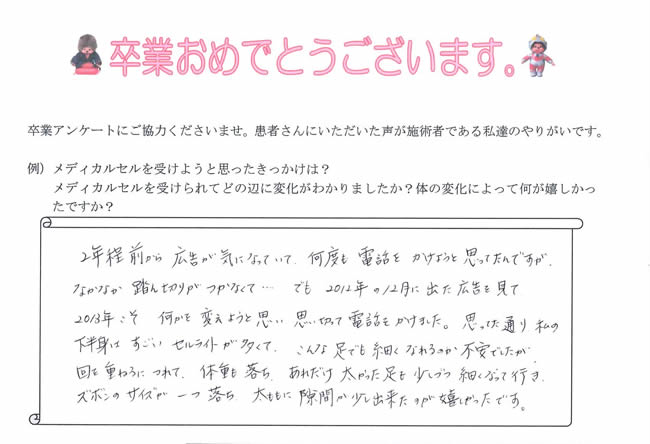 卒業おめでとうございます。
卒業アンケートにご協力くださいませ。患者さんにいただいた声が施術者である私達のやりがいです。
例）メディカルセルを受けようと思ったきっかけは？
メディカルセルを受けられてどの辺に変化がわかりましたか？体の変化によって何が嬉しかっ
たですか？
2年程前から広告が気になっていて、何度も電話をかけようと思ってたんですが、
なかなか踏ん切りがつかなくて… でも 2012年の12月に出た広告を見て
2013年こそ 何かを変えようと思い 思い切って電話をかけました。思ってた通り 私の
下半身は すごい セルライトが多くて、こんな足でも細くなれるのか不安でしたが、
回を重ねるにつれて、体重も落ち、あれだけ太かった足も少しづつ細くなって行き、
ズボンのサイズが一つ落ち 太ももに隙間が少し出来たのが嬉しかったです。